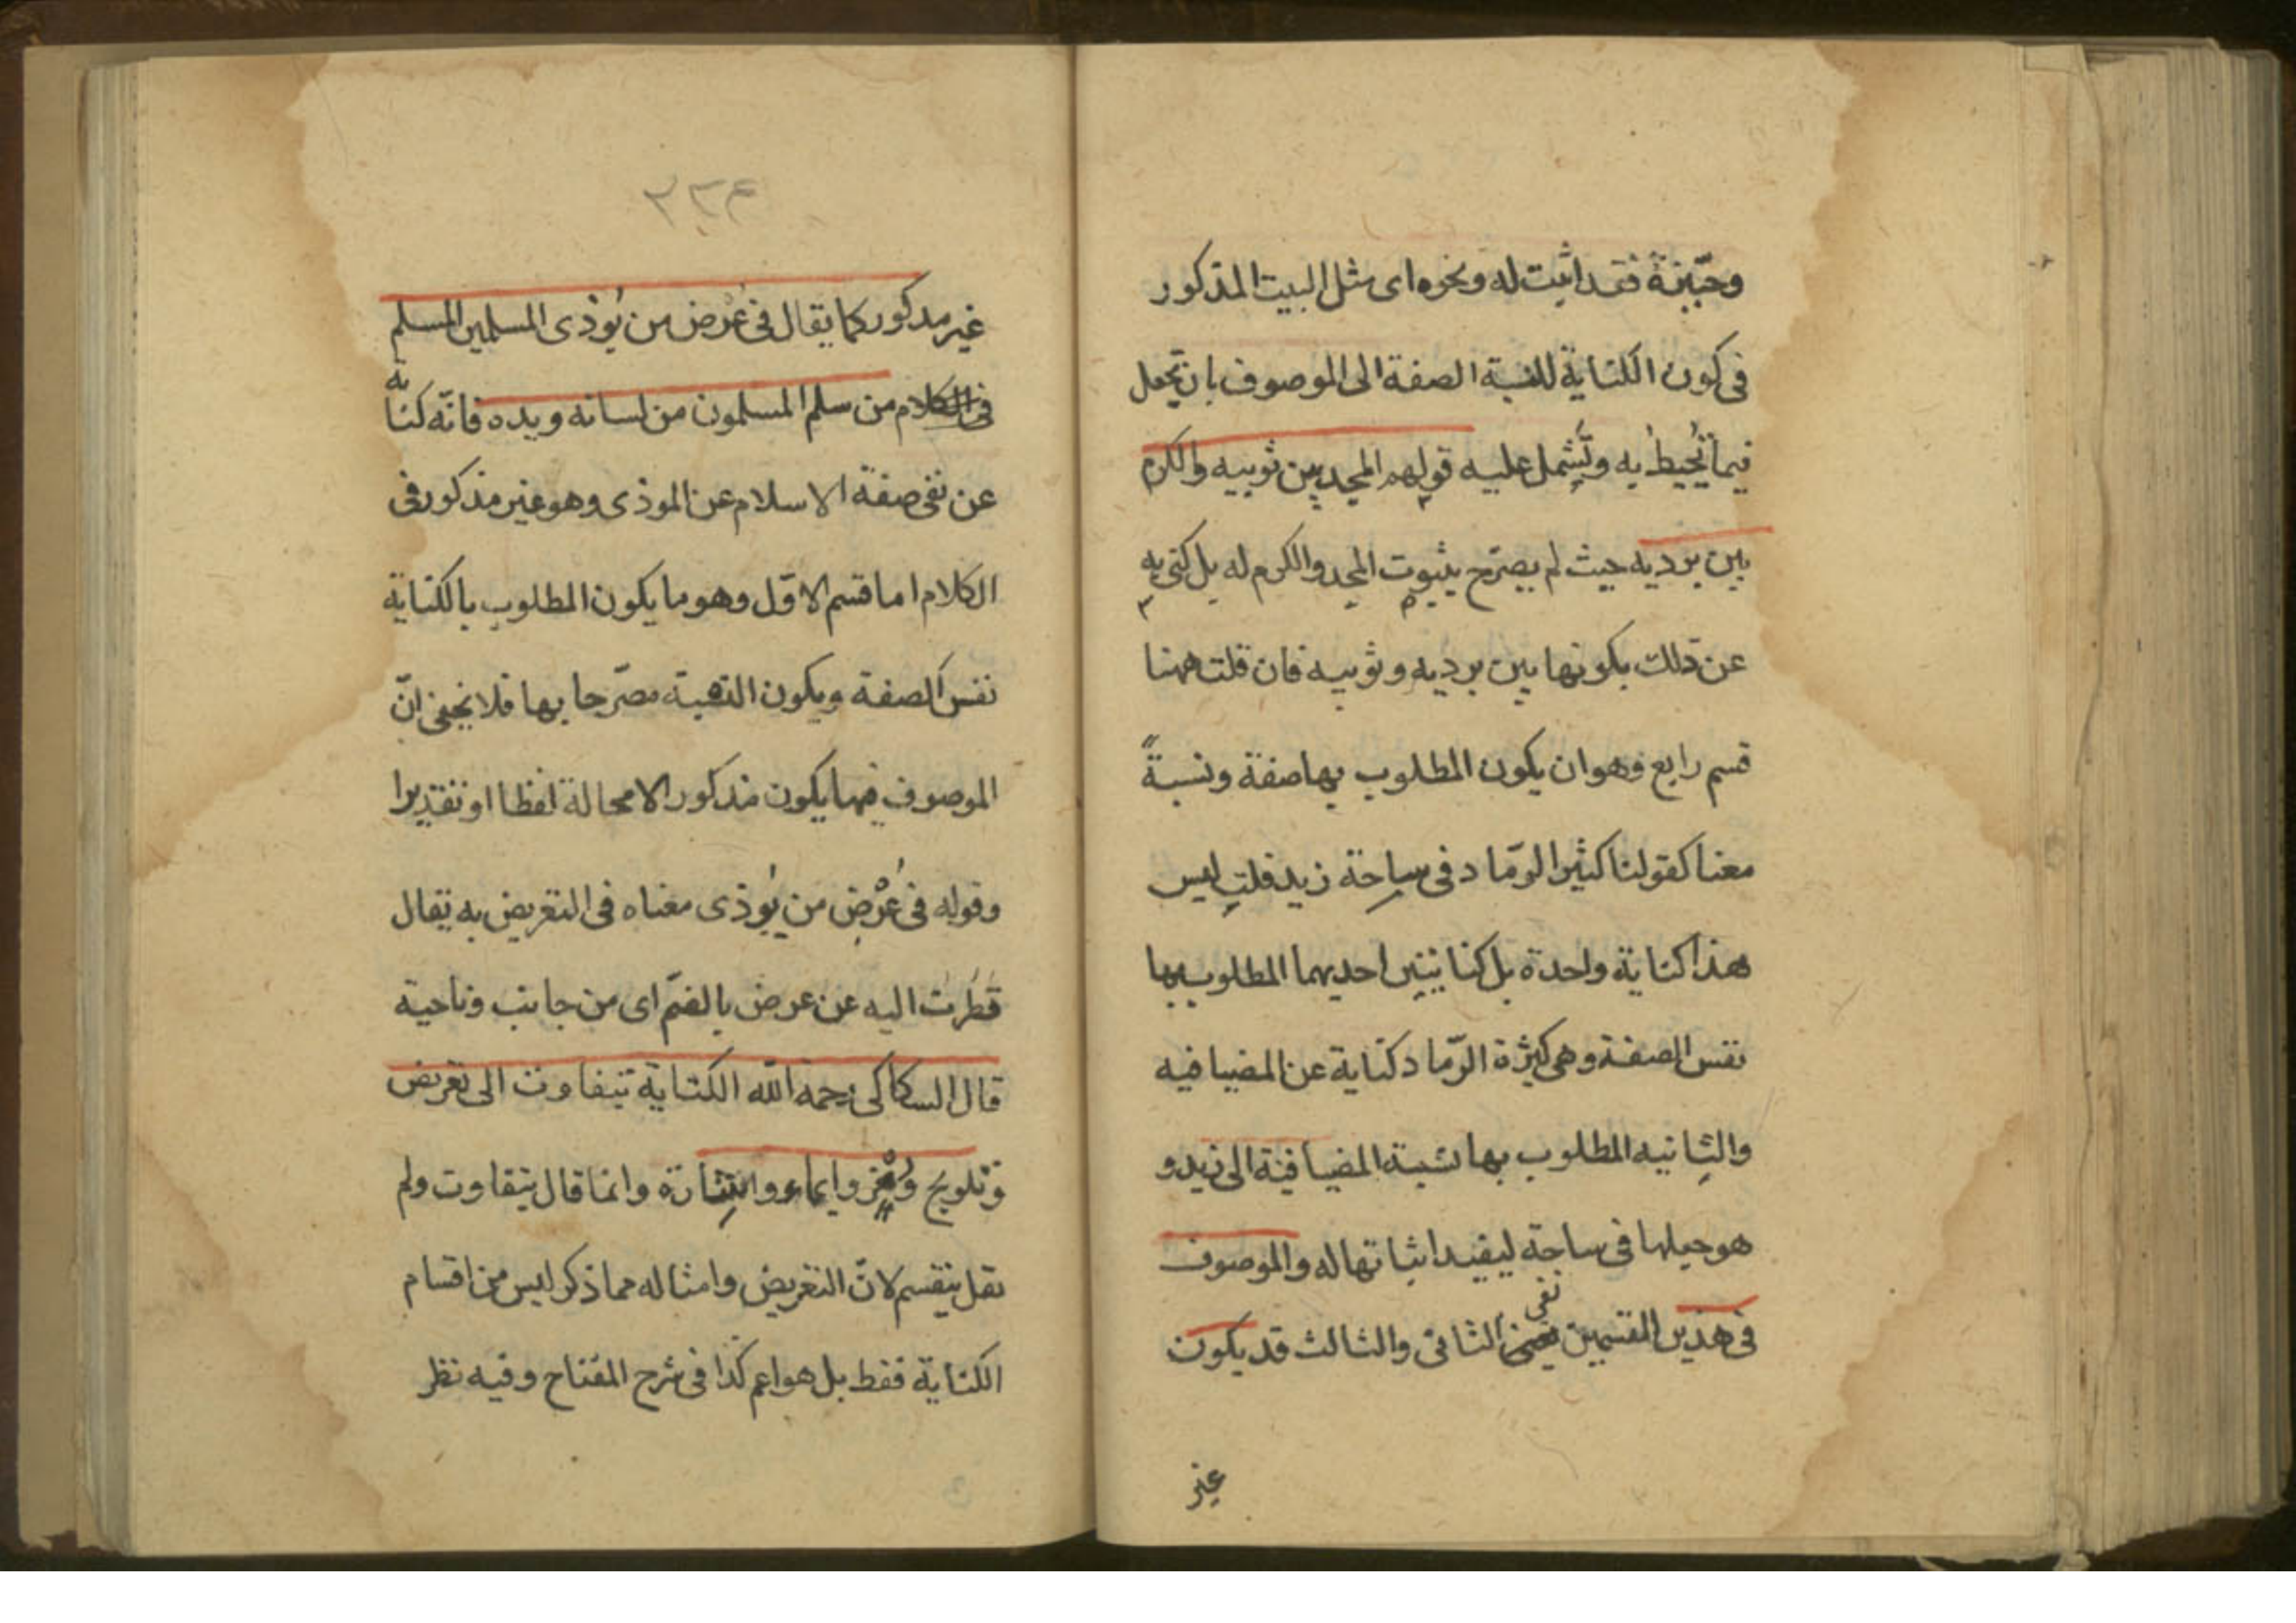 وحيّزة فقد اثبت له ونحوه اى مثل البيت المذكور
فى كون الكناية لنسبة الصفة الى الموصوف بان تجعل
فيما يُحيط به ويشمل عليه قولهم المجد بين ثوبيه والكرم
بين برديه حيث لم يصرّح بثبوت المجد والكرم له بل كنى به
عن ذلك بكونها بين برديه وثوبيه فان قلت ههنا
قسم رابع وهو ان يكون المطلوب بها صفة ونسبةً
معنا كقولنا كثير الرّماد فى ساحة زيد قلت ليس
هذا كناية واحدة بل كنايتين احديهما المطلوب بها
نفس الصفة وهى كثرة الرّماد كناية عن المضيافيه
والثانيه المطلوب بها نسبة المضيافية الى زيد و
هو جعلها فى ساحة ليفيد اثباتها له والموصوف
فى هذين القسمين الثانى والثالث قد يكون
غير
٢٣٤
غير مذكور كما يقال فى عُرض من يُوذى المسلمين المسلم
من سلم المسلمون من لسانه ويده فانّه كناية
عن نفى صفة الاسلام عن الموذى وهو غير مذكور فى
الكلام اما قسم الاوّل وهو ما يكون المطلوب بالكناية
نفس الصفة ويكون مصرّحا بها فلا يخفى انّ
الموصوف فيها يكون مذكورا لامحالة لفظا او تقديرا
وقوله فى عُرْض من يُوذى معناه فى التعريض به يقال
نظرت اليه عن عرض بالضمّ اى من جانب وناحية
قال السكاكى رحمه الله الكناية تتفاوت الى تعريض
وتلويح وايماء واشارة وانما قال يتفاوت ولم
يقل ينقسم لانّ التعريض وامثاله مما ذكر ليس من اقسام
الكناية فقط بل هو اعم كذا فى شرح المفتاح وفيه نظر